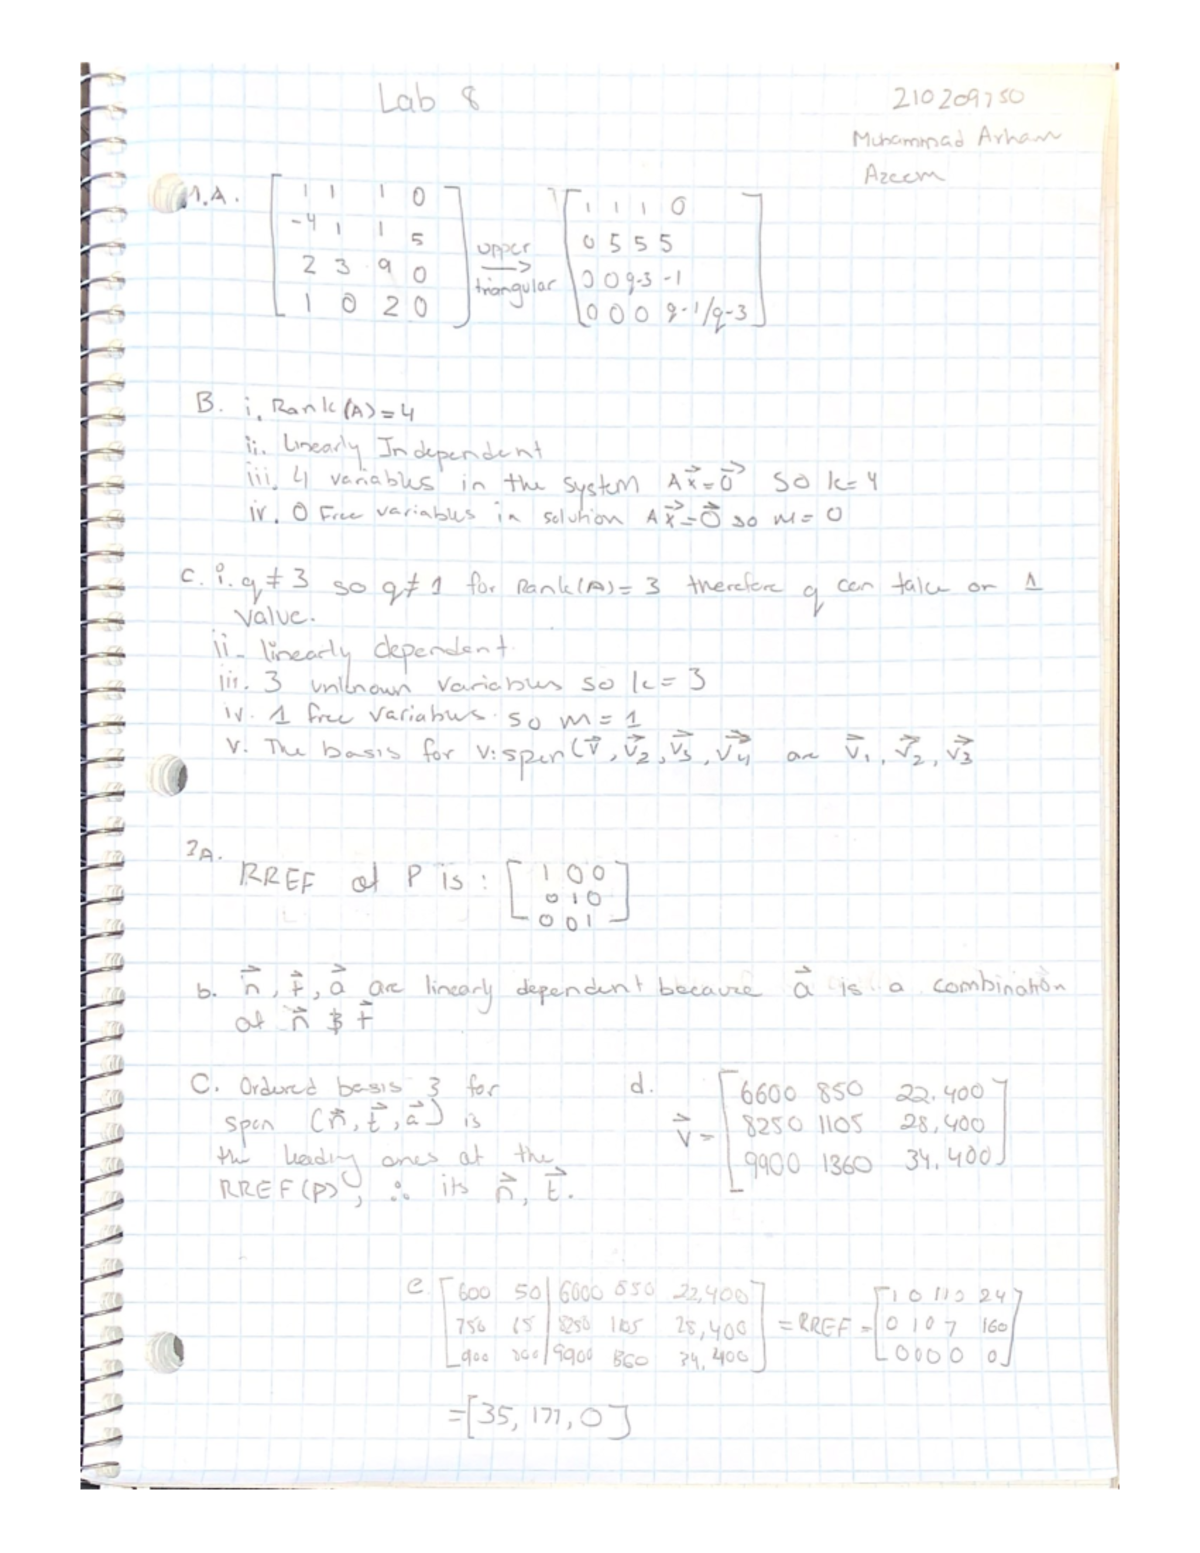 Lab 8
210209750
Muhammad Arham
Azeem
1.A.
[ 1 1 1 0
-4 1 1 5
2 3 9 0
1 0 2 0 ]
upper
→
triangular
[ 1 1 1 0
0 5 5 5
0 0 q-3 -1
0 0 0 q-1/q-3 ]
B. i. Rank(A)=4
ii. Linearly Independent
iii. 4 variables in the system Ax⃗=0⃗ so k=4
iv. 0 Free variables in solution Ax⃗=0⃗ so m=0
C. i. q≠3 so q≠1 for Rank(A)=3 therefore q can take on 1
value.
ii- linearly dependent.
iii. 3 unknown variables so k=3
iv. 1 free variables so m=1
v. The basis for V:span(v⃗, v⃗2, v⃗3, v⃗4 are v⃗1, v⃗2, v⃗3
2A.
RREF of P is: [ 1 0 0
0 1 0
0 0 1 ]
b. n⃗, t⃗, a⃗ are linearly dependent because a⃗ is a combination
of n⃗ & t⃗
C. Ordered basis 3 for
span (n⃗, t⃗, a⃗) is
the leading ones of the
RREF(P), ∴ its n⃗, t⃗.
d.
v⃗ = [ 6600 850 22,400
8250 1105 28,400
9900 1360 34,400 ]
e. [ 600 50 | 6600 850 22,400
750 65 | 8250 1105 28,400
900 | 9900 860 34,400 ]
= RREF = [ 1 0 11 24
0 1 0 7 160
0 0 0 0 0 ]
=[35, 177, 0]